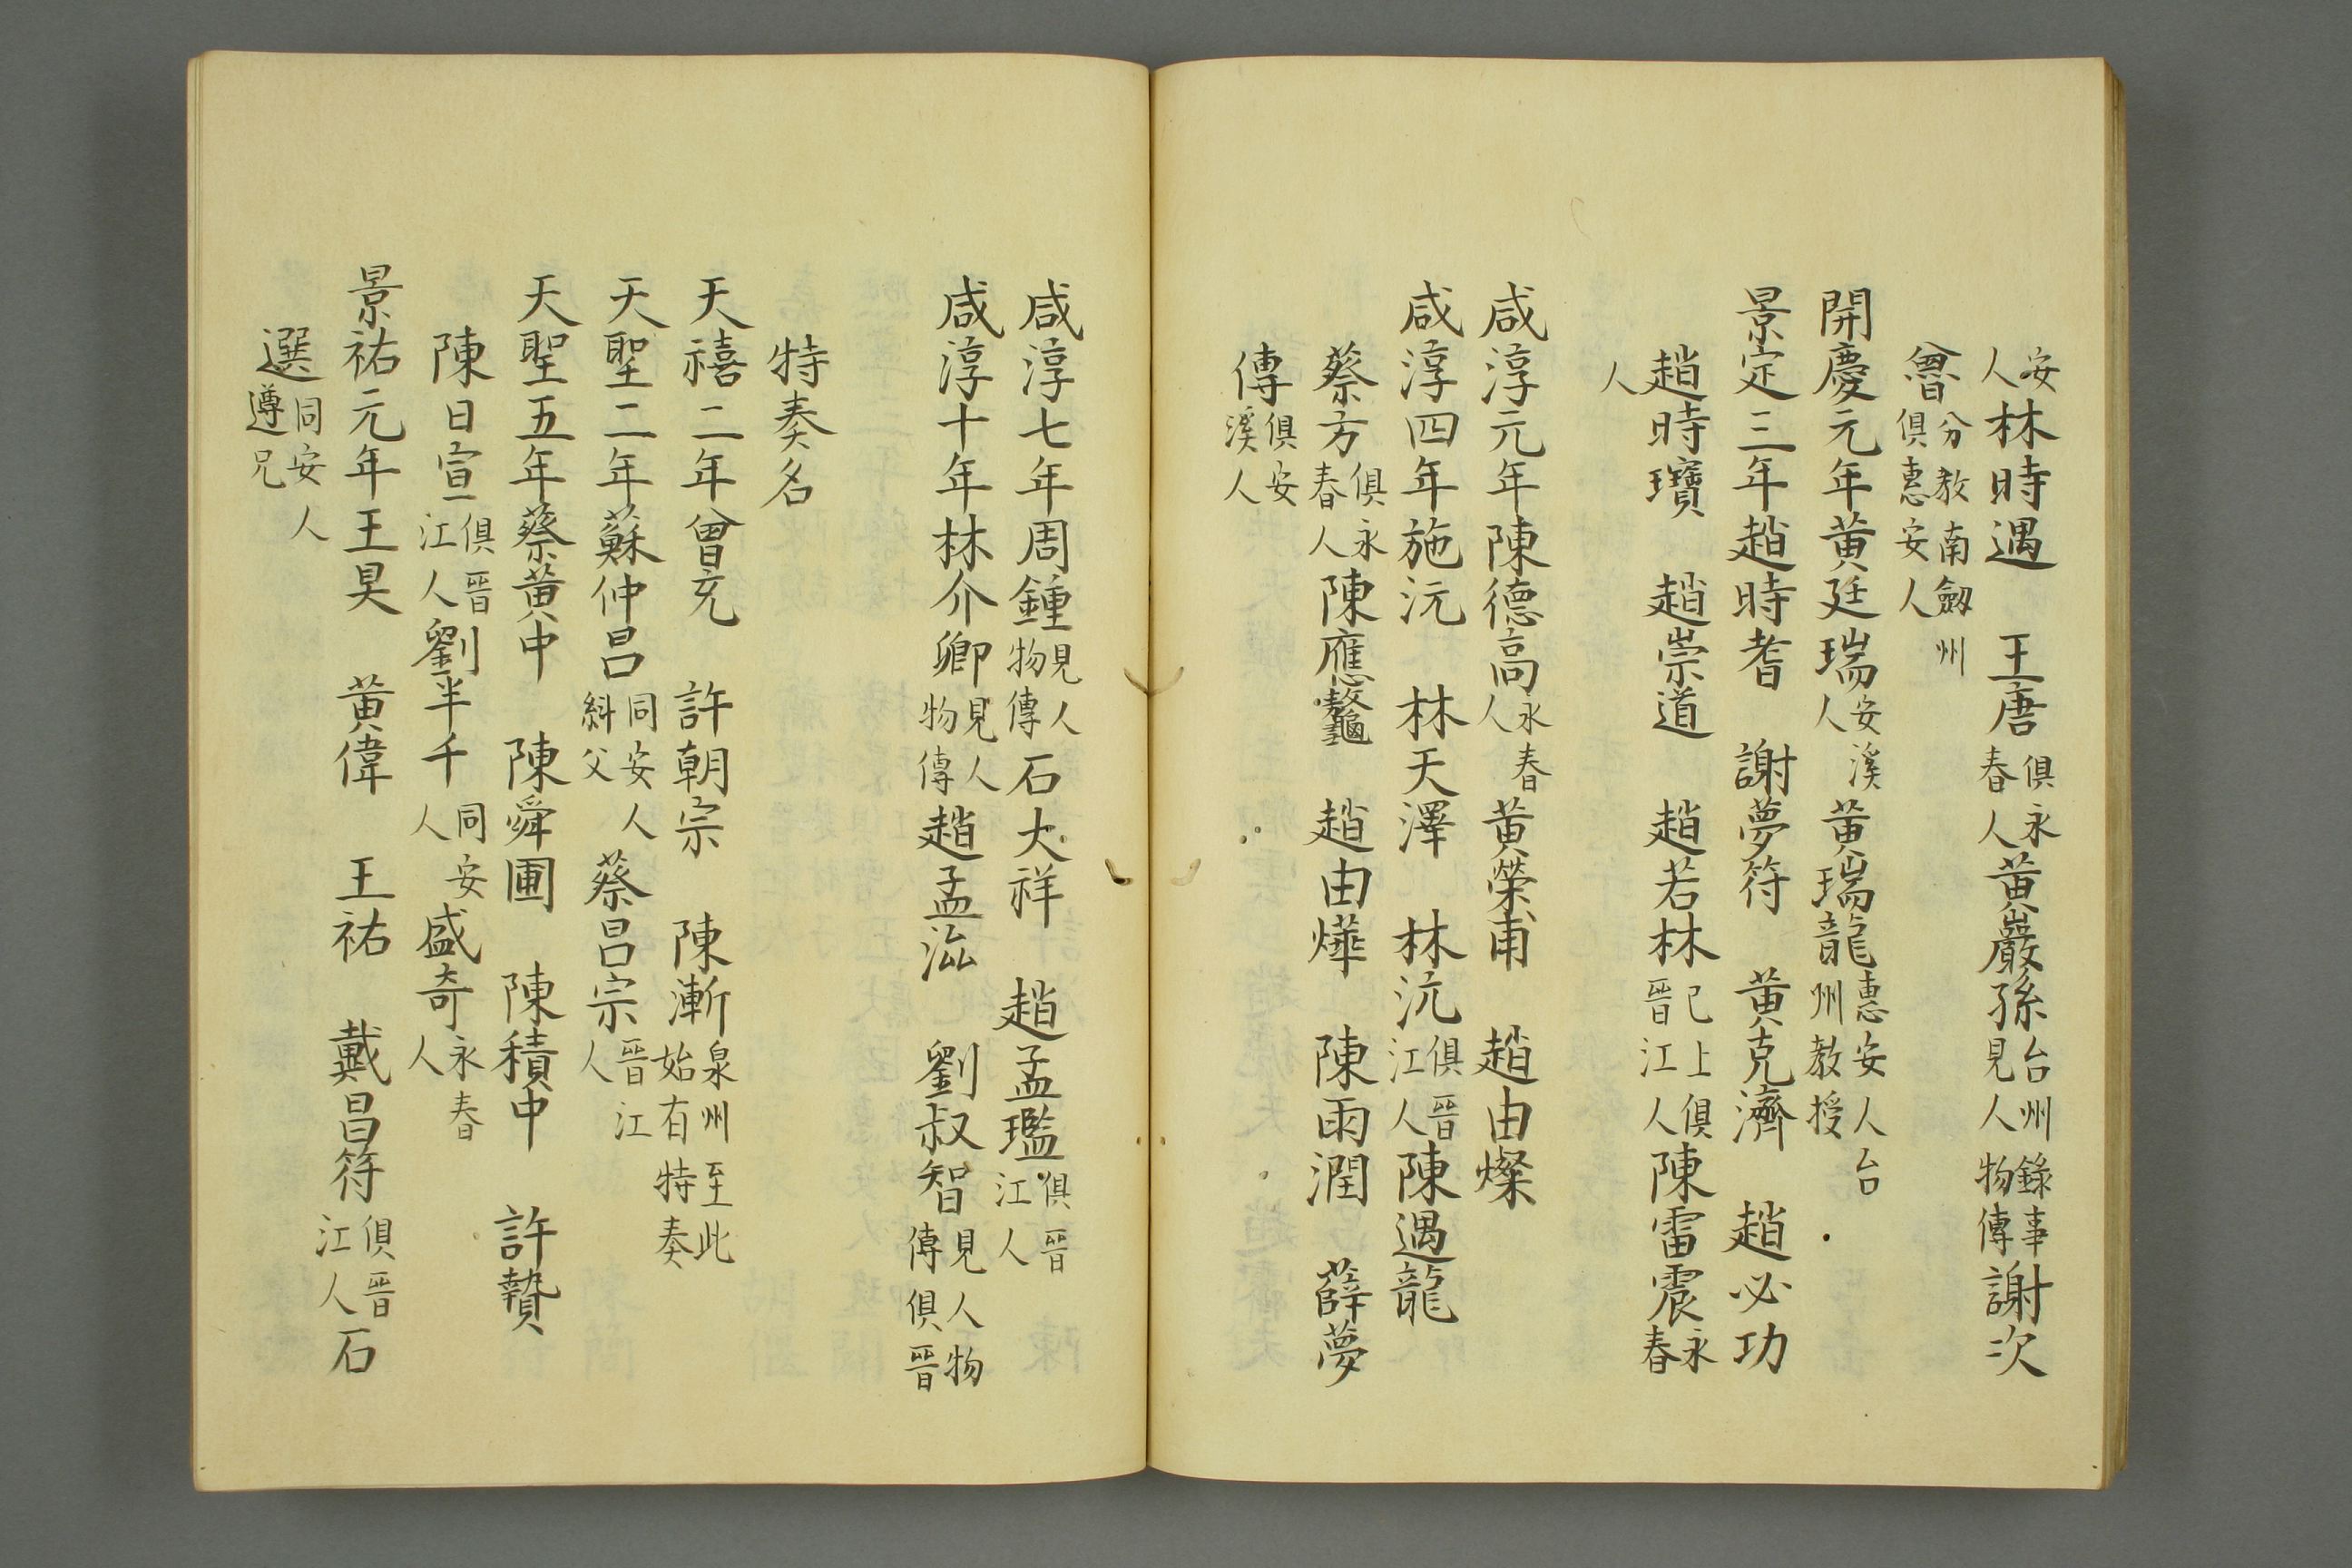 安人林時遇　王唐俱永春人黃巖孫台州錄事見人物傳謝次
曾分教南劔州俱惠安人
開慶元年黃廷瑞安溪人黃瑞龍惠安人台州教授
景定三年趙時耆　謝夢符　黃克濟　趙必功
趙時瓚　趙崇道　趙若林已上俱晉江人陳雷震永春
人
咸淳元年陳德高永春人黃榮甫　趙由燦
咸淳四年施沅　林天澤　林沆俱晉江人陳遇龍
蔡方俱永春人陳應鼇　趙由燁　陳雨潤　薛夢
傳俱安溪人
咸淳七年周鍾見人物傳石大祥　趙孟㼈俱晉江人
咸淳十年林介卿見人物傳趙孟泑　劉叔智見人物傳俱晉
特奏名
天禧二年曾充　許朝宗　陳漸泉州至此始有特奏
天聖二年蘇仲昌同安人紏父蔡昌宗晉江人
天聖五年蔡黃中　陳舜圃　陳積中　許贄
陳日宣俱晉江人劉半千同安人盛奇永春人
景祐元年王昊　黃偉　王祐　戴昌符俱晉江人石
選同安人遵兄